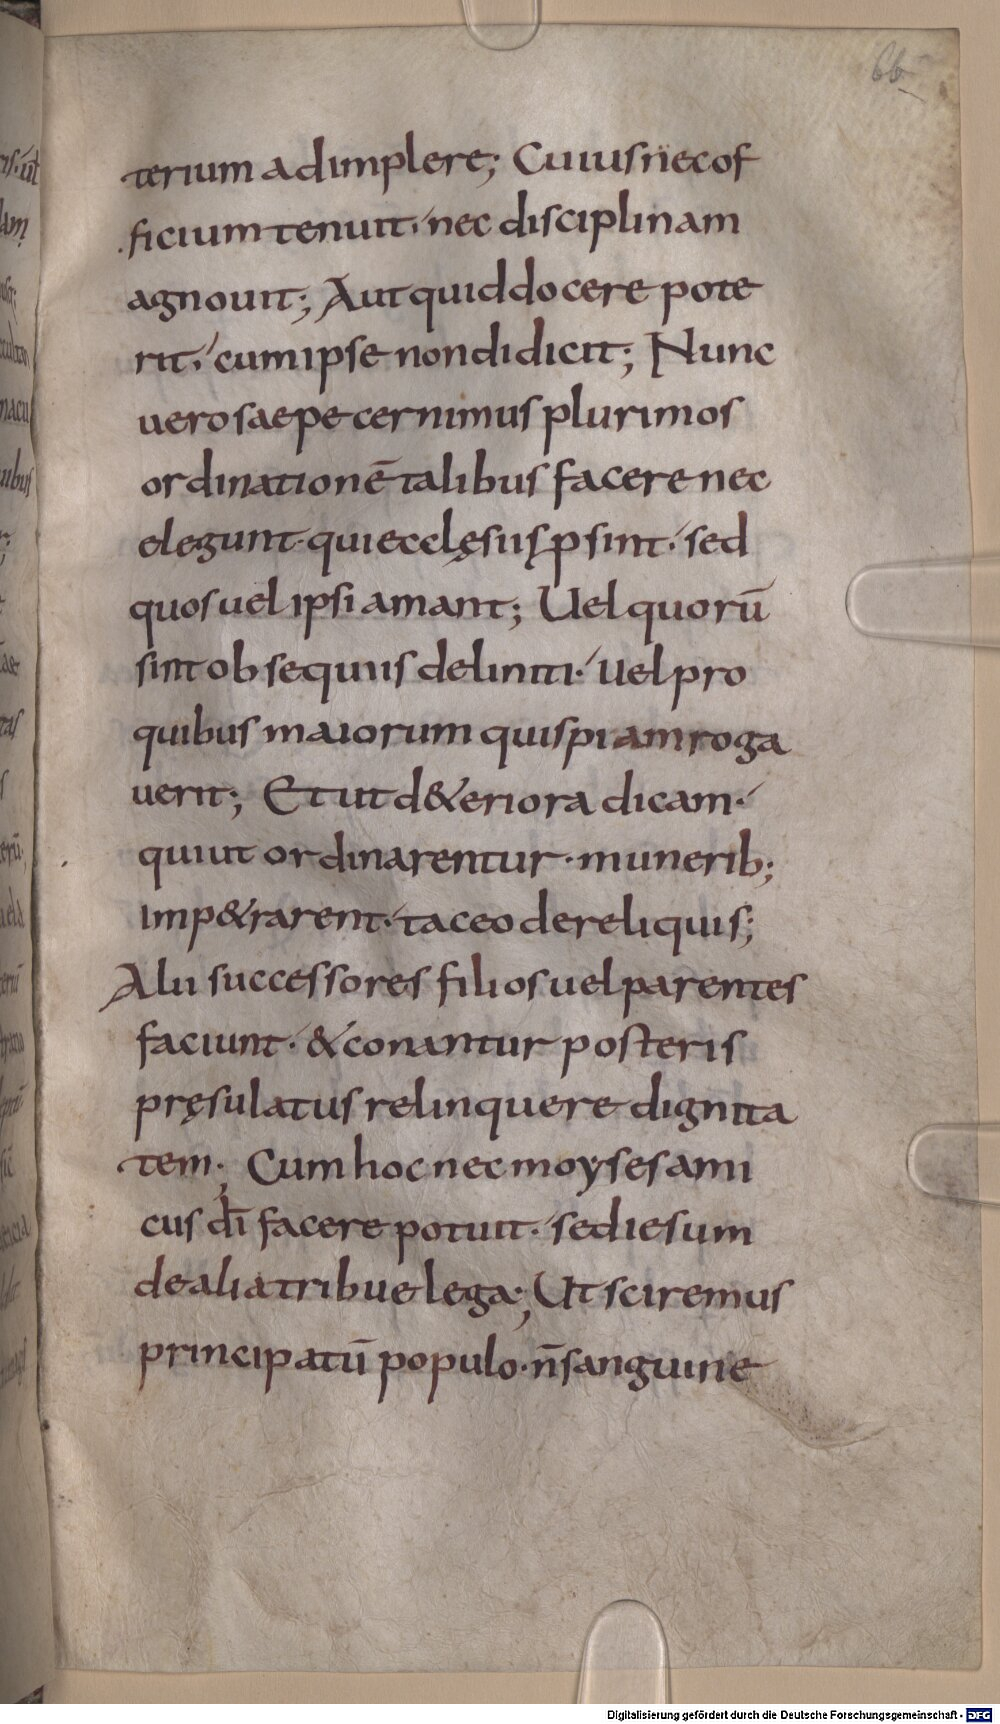 66
terium adimplere; Cuius nec of
ficium tenuit, nec disciplinam
agnouit; Aut quid docere pote
rit, cum ipse non didicit; Nunc
uero saepe cernimus plurimos
ordinationē talibus facere nec
elegunt qui ecclęsiis p̱sint, sed
quos uel ipsi amant; Uel quorū
sint obsequiis deliniti, uel pro
quibus maiorum quispiam roga
uerit; Et ut d&eriora dicam,
qui ut ordinarentur · munerib;
imp&rarent, taceo de reliquis;
Alii successores filios uel parentes
faciunt, & conantur posteris
pręsulatus relinquere dignita
tem; Cum hoc nec moyses ami
cus dī facere potuit, sed iesum
de alia tribu elega; Ut sciremus
principatū populo · n̄ sanguine
Digitalisierung gefördert durch die Deutsche Forschungsgemeinschaft - DFG